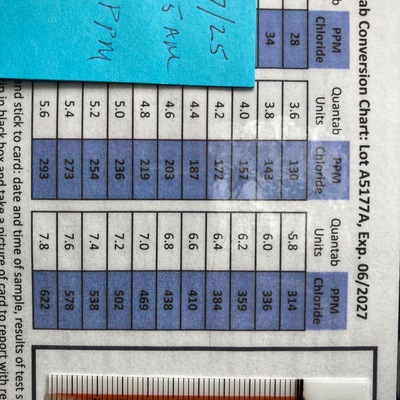 Conversion Chart: Lot A5177A, Exp. 06/2027
PPM Quantab PPM Quantab PPM
Chloride Units Chloride Units Chloride
28 3.6 130 -5.8 314
34 3.8 143 6.0 336
4.0 157 6.2 359
4.2 172 6.4 384
4.4 187 6.6 410
4.6 203 6.8 438
4.8 219 7.0 469
5.0 236 7.2 502
5.2 254 7.4 538
5.4 273 7.6 578
5.6 293 7.8 622
/25
AM
PPM
and stick to card: date and time of sample, results of test
in black box and take a picture of card to report with